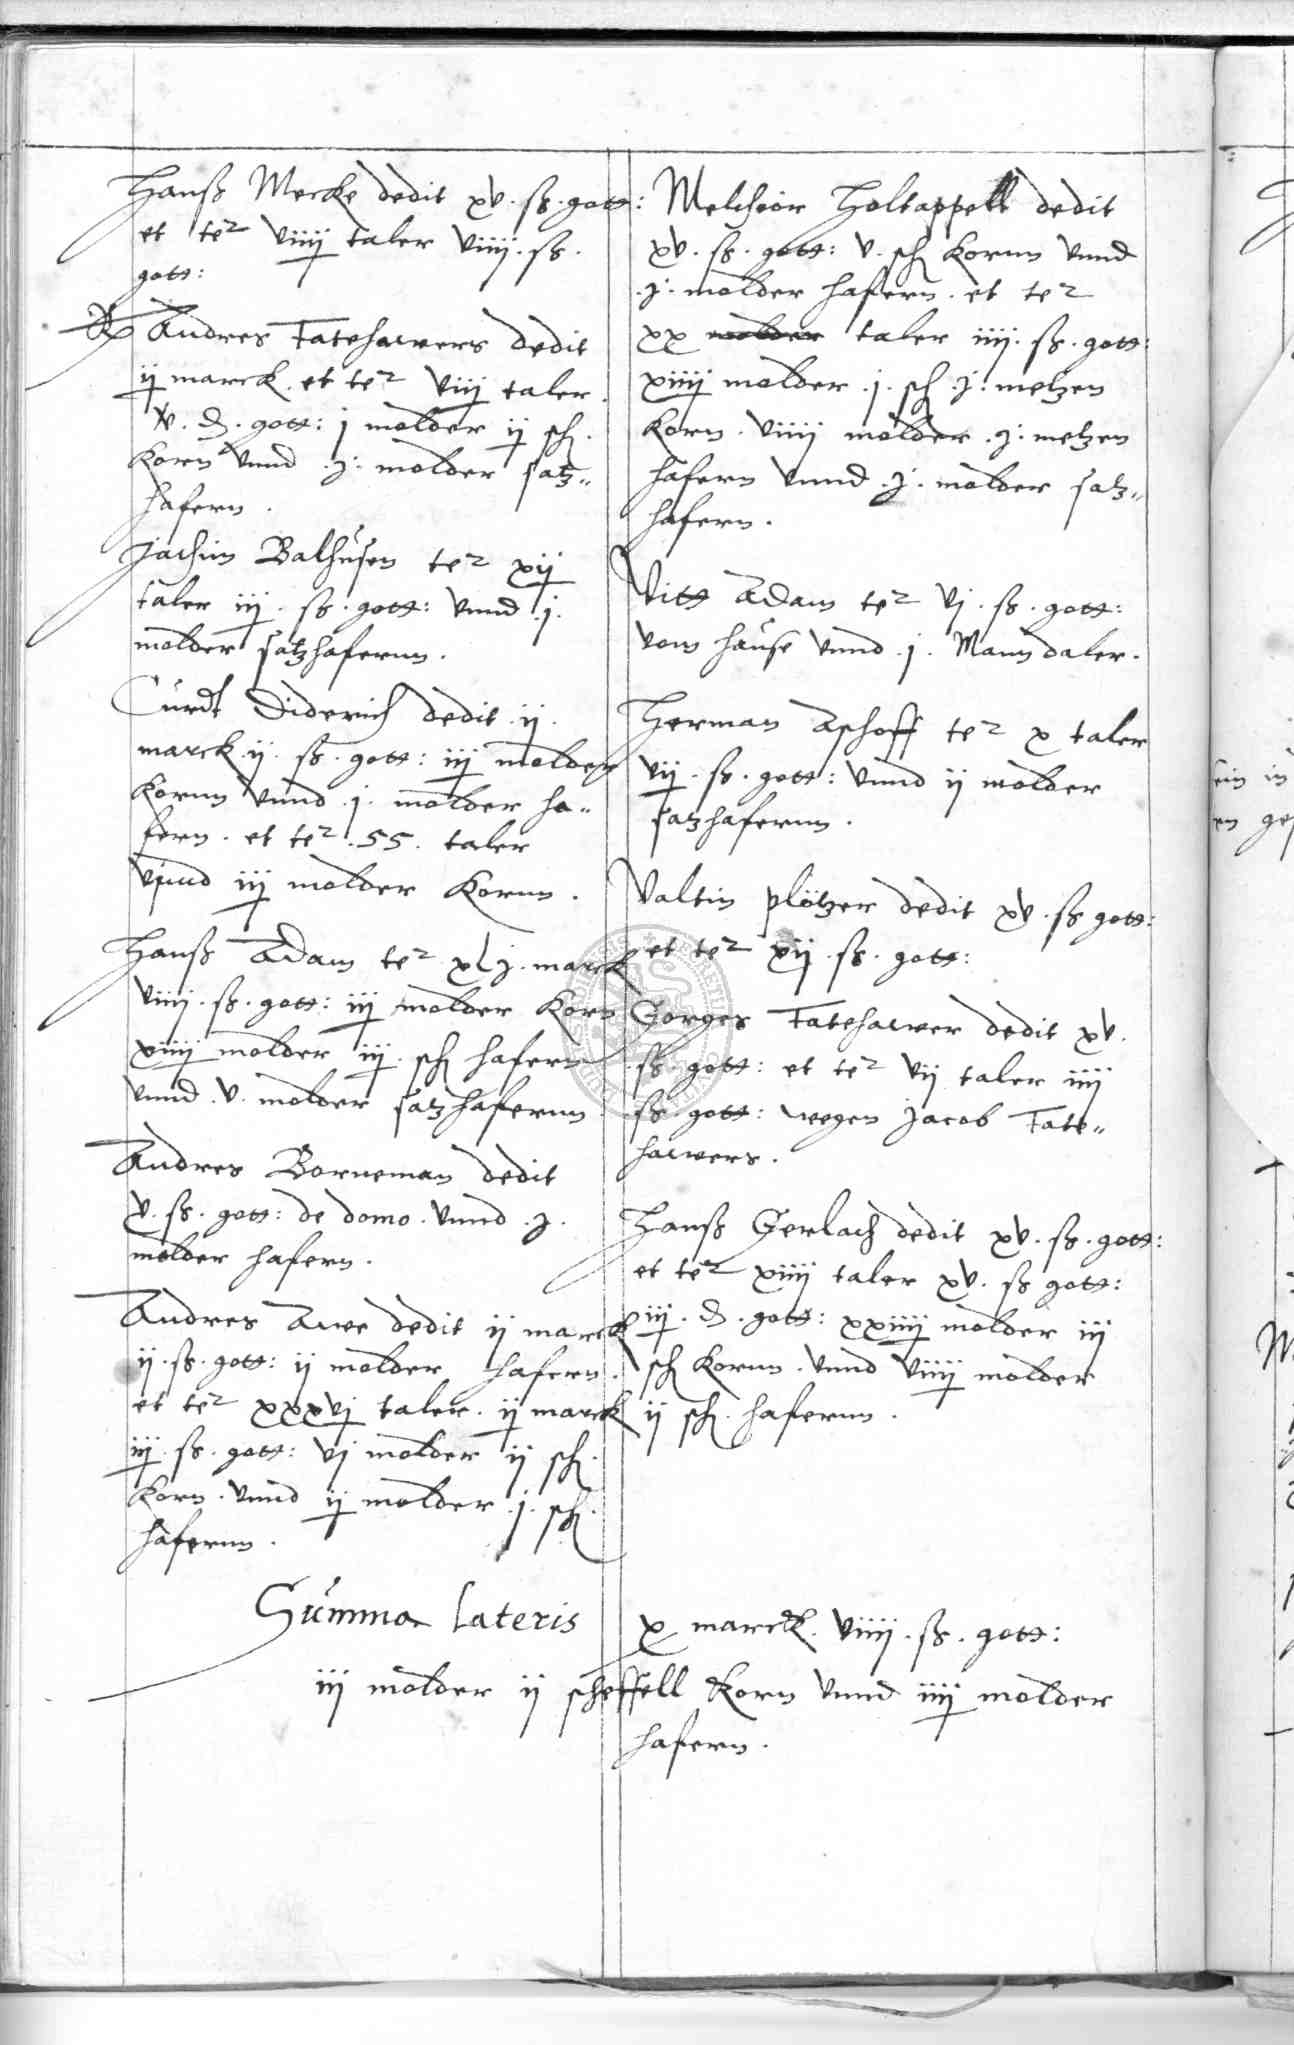 Hanß Mercke dedit xv. ß. gott:
et te2 viiij taler viiij. ß.
gott:
Andres Tatehawers dedit
ij marck. et te2 viij taler.
v. d. gott: j molder ij sch.
Korn vnnd .j. molder satz„
hafern.
Jachim Balhusen te2 xij
taler iij. ß. gott: vnnd .j.
molder satzhafernn.
Curdt Diderich dedit .ij.
marck .ij. ß. gott: iij molder
Kornn vnnd .j. molder ha„
fern. et te2 .55. taler
vnnd iij molder Kornn.
Hanß Adam te2 xlj. marck
viiij. ß. gott: iij molder Korn
xiiij molder iij. sch hafern
vnnd .v. molder satzhafernn.
Andres Borneman dedit
v. ß. gott: de domo. vnnd .j.
molder hafern.
Andres Awe dedit ij marck
ij. ß. gott: ij molder hafern.
et te2 xxxvj taler. ij marck
iij. ß. gott: vj molder ij sch.
Korn. vnnd ij molder .j. sch.
hafernn.
Melchior Holtappell dedit
xv. ß. gott: v. sch Kornn vnnd
.j. molder hafern. et te2
xx molder taler iiij. ß. gott:
xiiij molder .j. sch .j. metzen
Korn. viiij molder .j. metzen
hafern vnnd .j. molder satz„
hafern.
Vitt Adam te2 vj. ß. gott:
vom hause vnnd .j. Mann daler.
Herman Aschoff te2 x taler
vij. ß. gott: vnnd ij molder
satzhafernn.
Valtin plötzer dedit xv. ß gott:
et te2 xij. ß. gott:
Gorges Tatehawer dedit xv.
ß. gott: et te2 vij taler iiij
ß. gott: wegen Jacob Tate„
hawers.
Hanß Gerlach dedit xv. ß. gott:
et te2 xiiij taler xv. ß gott:
iij. d. gott: xxiiij molder iij
sch Kornn. vnnd viiij molder
ij sch. hafernn.
Summa lateris x marck. viiij. ß. gott:
iij molder ij scheffell Korn vnnd iiij molder
hafern.